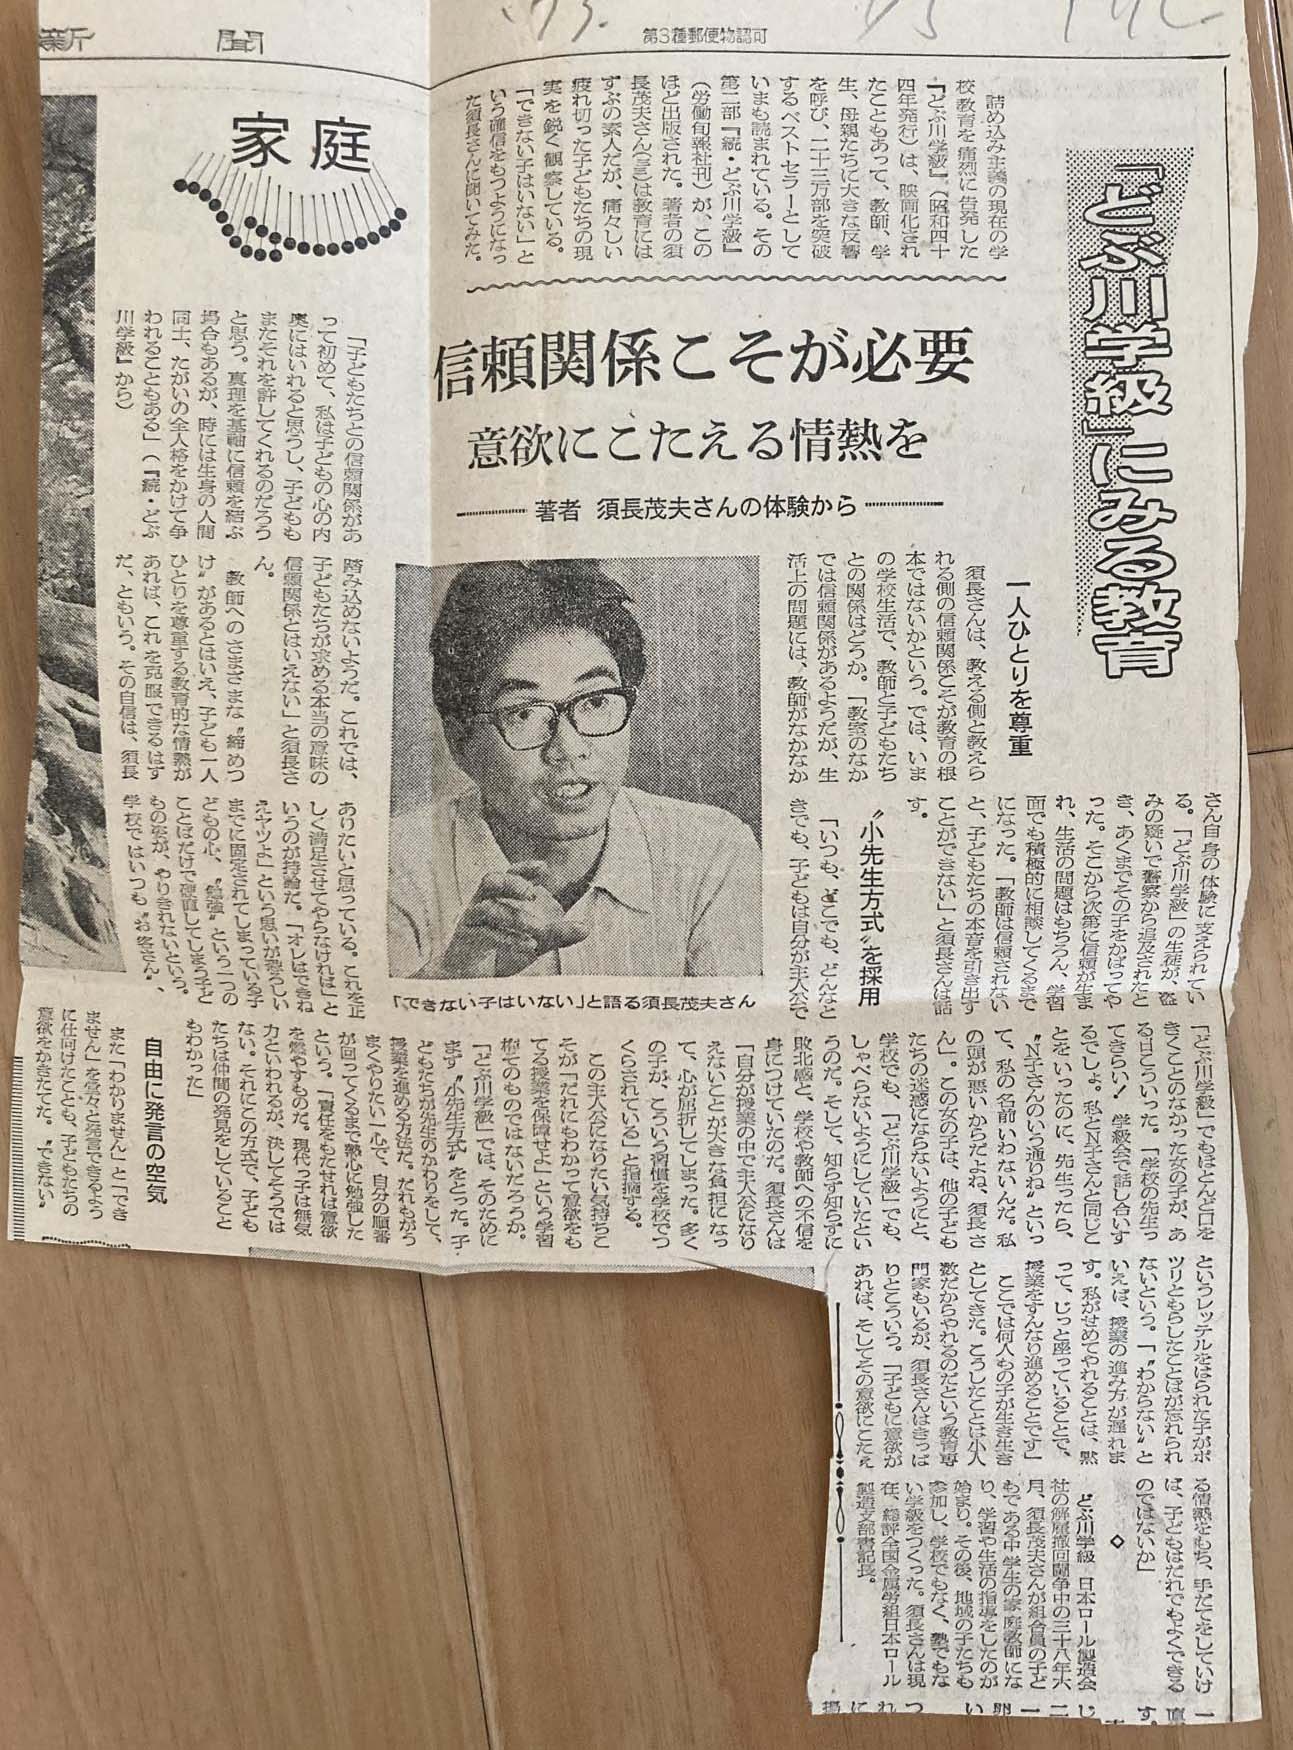 新聞
第3種郵便物認可
家庭
「どぶ川学級」にみる教育
詰め込み主義の現在の学
校教育を痛烈に告発した
『どぶ川学級』（昭和四十
四年発行）は、映画化され
たこともあって、教師、学
生、母親たちに大きな反響
を呼び、二十三万部を突破
するベストセラーとして
いまも読まれている。その
第二部『続・どぶ川学級』
（労働旬報社刊）が、この
ほど出版された。著者の須
長茂夫さん（三三）は教育には
ずぶの素人だが、痛々しい
疲れ切った子どもたちの現
実を鋭く観察している。
「できない子はいない」と
いう確信をもつようになっ
た須長さんに聞いてみた。
信頼関係こそが必要
意欲にこたえる情熱を
著者 須長茂夫さんの体験から
「子どもたちとの信頼関係があ
って初めて、私は子どもの心の内
奥にはいれると思うし、子どもも
またそれを許してくれるのだろう
と思う。真理を基軸に信頼を結ぶ
場合もあるが、時には生身の人間
同士、たがいの全人格をかけて争
われることもある」（『続・どぶ
川学級』から）
一人ひとりを尊重
須長さんは、教える側と教えら
れる側の信頼関係こそが教育の根
本ではないかという。では、いま
の学校生活で、教師と子どもたち
との関係はどうか。「教室のなか
では信頼関係があるようだが、生
活上の問題には、教師がなかなか
踏み込めないようだ。これでは、
子どもたちが求める本当の意味の
信頼関係とはいえない」と須長さ
ん。
教師へのさまざまな〝締めつ
け〟があるとはいえ、子ども一人
ひとりを尊重する教育的な情熱が
あれば、これを克服できるはず
だ、ともいう。その自信は、須長
さん自身の体験に支えられてい
る。「どぶ川学級」の生徒が、盗
みの疑いで警察から追及されたと
き、あくまでその子をかばってや
った。そこから次第に信頼が生ま
れ、生活の問題はもちろん、学習
面でも積極的に相談してくるまで
になった。「教師は信頼されない
と、子どもたちの本音を引き出す
ことができない」と須長さんは話
す。
〝小先生方式〟を採用
「いつも、どこでも、どんなと
きでも、子どもは自分が主人公で
「できない子はいない」と語る須長茂夫さん
ありたいと思っている。これを正
しく満足させてやらなければ」と
いうのが持論だ。「オレはできね
えヤツよ」という思いが恐ろしい
までに固定されてしまっている子
どもの心、〝勉強〟という一つの
ことばだけで硬直してしまう子ど
もの姿が、やりきれないという。
学校ではいつも〝お客さん〟、
「どぶ川学級」でもほとんど口を
きくことのなかった女の子が、あ
る日こういった。「学校の先生っ
てきらい！　学級会で話し合いす
るでしょ。私とN子さんと同じこ
とをいったのに、先生ったら、
〝N子さんのいう通りね〟といっ
て、私の名前いわないんだ。私
の頭が悪いからだよね、須長さ
ん」。この女の子は、他の子ども
たちの迷惑にならないようにと、
学校でも、「どぶ川学級」でも、
しゃべらないようにしていたとい
うのだ。そして、知らず知らずに
敗北感と、学校や教師への不信を
身につけていたのだ。須長さんは
「自分が授業の中で主人公になり
えないことが大きな負担になっ
て、心が屈折してしまった。多く
の子が、こういう習慣を学校でつ
くらされている」と指摘する。
この主人公になりたい気持ちこ
そが「だれにもわかって意欲をも
てる授業を保障せよ」という学習
権そのものではないだろうか。
「どぶ川学級」では、そのために
まず〝小先生方式〟をとった。子
どもたちが先生のかわりをして、
授業を進める方法だ。だれもがう
まくやりたい一心で、自分の順番
が回ってくるまで熱心に勉強した
という。「責任をもたせれば意欲
を燃やすものだ。現代っ子は無気
力といわれるが、決してそうでは
ない。それにこの方式で、子ども
たちは仲間の発見をしていること
もわかった」
自由に発言の空気
また「わかりません」と「でき
ません」を堂々と発言できるよう
に仕向けたことも、子どもたちの
意欲をかきたてた。〝できない〟
というレッテルをはられた子がポ
ツリともらしたことばが忘れられ
ないという。「〝わからない〟と
いえば、授業の進み方が遅れま
す。私がせめてやれることは、黙
って、じっと座っていることで、
授業をすんなり進めることです」
ここでは何人もの子が生き生き
としてきた。こうしたことは小人
数だからやれるのだという教育専
門家もいるが、須長さんはきっぱ
りとこういう。「子どもに意欲が
あれば、そしてその意欲にこたえ
る情熱をもち、手だてをしていけ
ば、子どもはだれでもよくできる
のではないか」
◇
どぶ川学級　日本ロール製造会
社の解雇撤回闘争中の三十八年六
月、須長茂夫さんが組合員の子ど
もである中学生の家庭教師にな
り、学習や生活の指導をしたのが
始まり。その後、地域の子たちも
参加し、学校でもなく、塾でもな
い学級をつくった。須長さんは現
在、総評全国金属労組日本ロール
製造支部書記長。